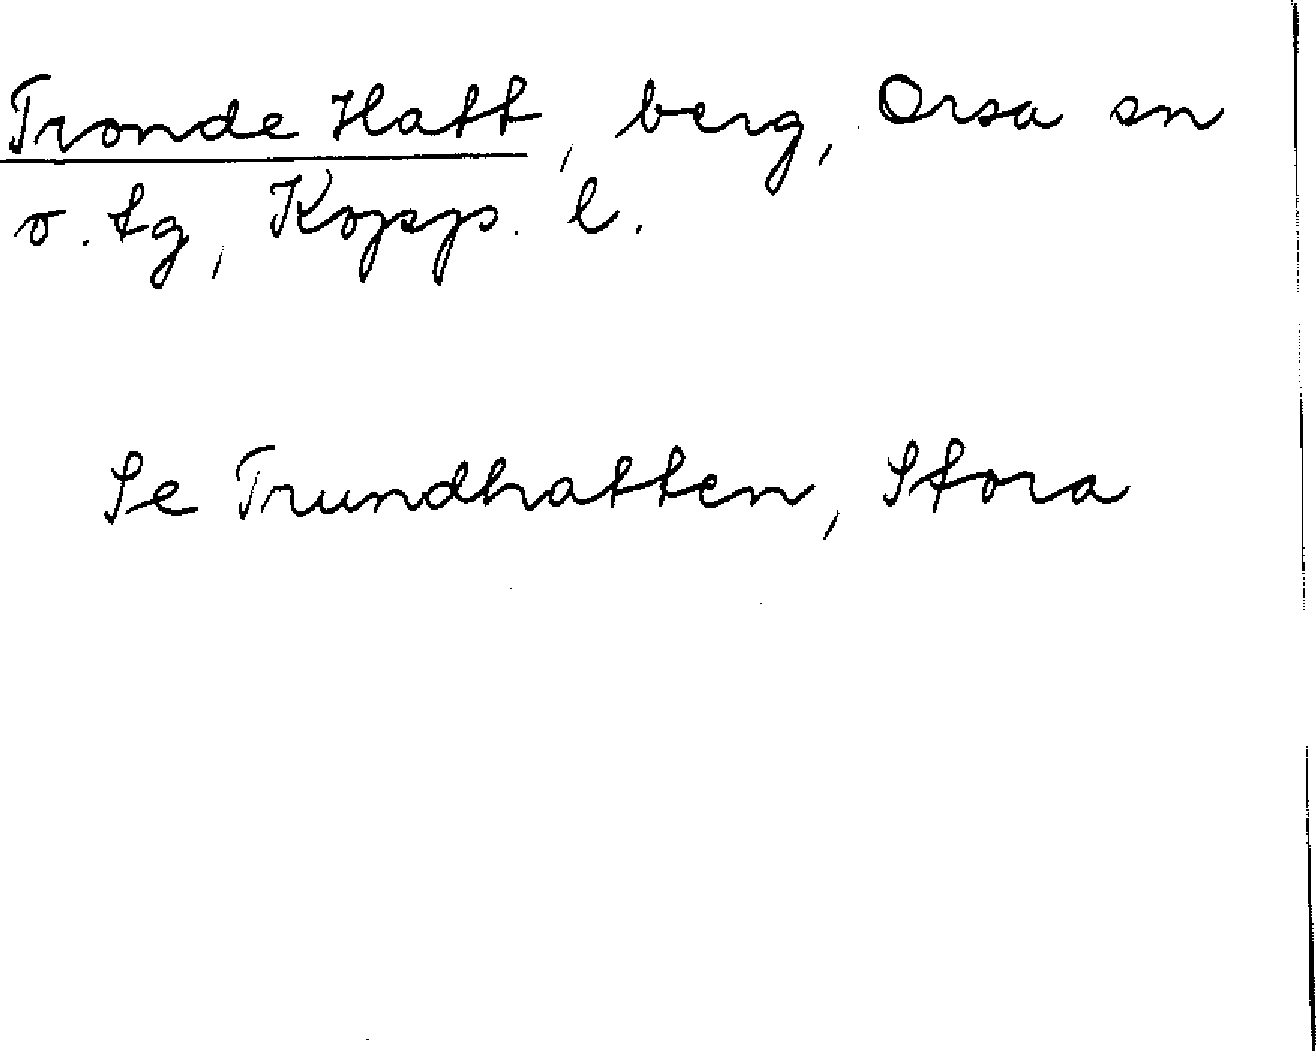 Tronde Hatt, berg, Orsa sn
o. tg, Kopp. l.
Se Trundhatten, Stora